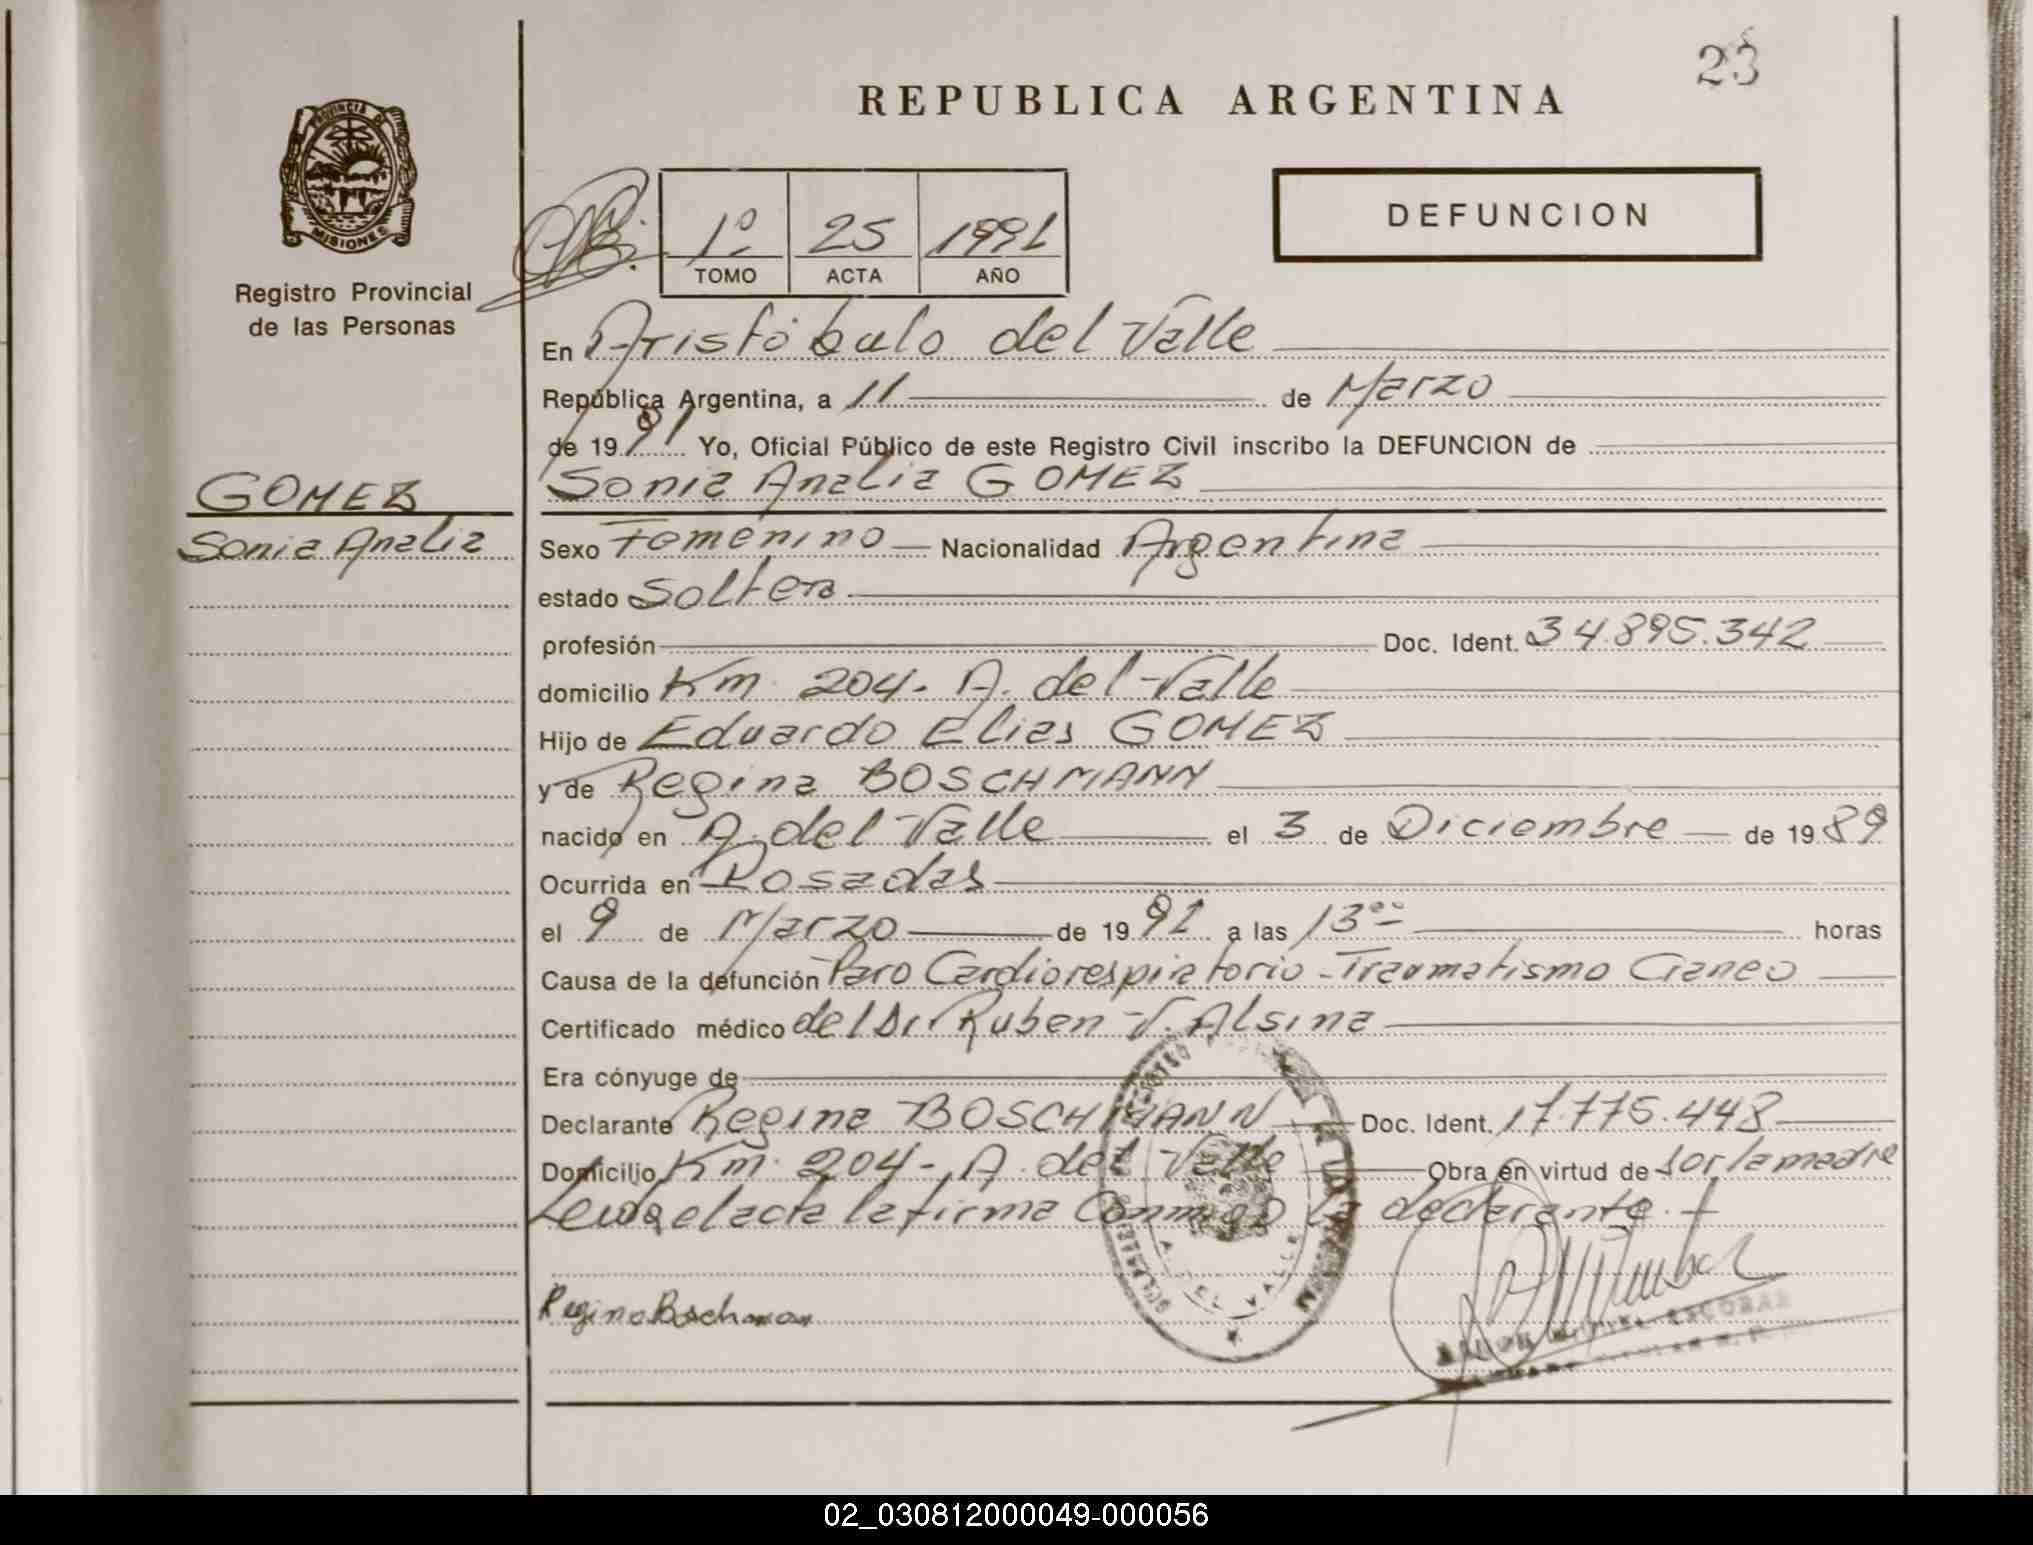 23
REPUBLICA ARGENTINA
PROVINCIA DE
MISIONES
Registro Provincial
de las Personas
DEFUNCION
1º 25 1991
TOMO ACTA AÑO
En Aristóbulo del Valle
República Argentina, a 11 de Marzo
de 1991 Yo, Oficial Público de este Registro Civil inscribo la DEFUNCION de
Sonia Analia GOMEZ
GOMEZ
Sonia Analia
Sexo Femenino Nacionalidad Argentina
estado Soltera
profesión Doc. Ident. 34.895.342
domicilio Km. 204- A. del Valle
Hijo de Eduardo Elias GOMEZ
y de Regina BOSCHMANN
nacido en A. del Valle el 3 de Diciembre de 1989
Ocurrida en Posadas
el 9 de Marzo de 1991 a las 13ºº horas
Causa de la defunción Paro Cardiorespiratorio - Traumatismo Craneo
Certificado médico del Dr. Ruben V. Alsina
Era cónyuge de
Declarante Regina BOSCHMANN Doc. Ident. 17.775.448
Domicilio Km. 204-, A. del Valle Obra en virtud de ser la madre
Leida el acta la firma Conmigo la declarante.
Regina Boschman
A. DEL VALLE
MIGUEL ESCOBAR
02_030812000049-000056